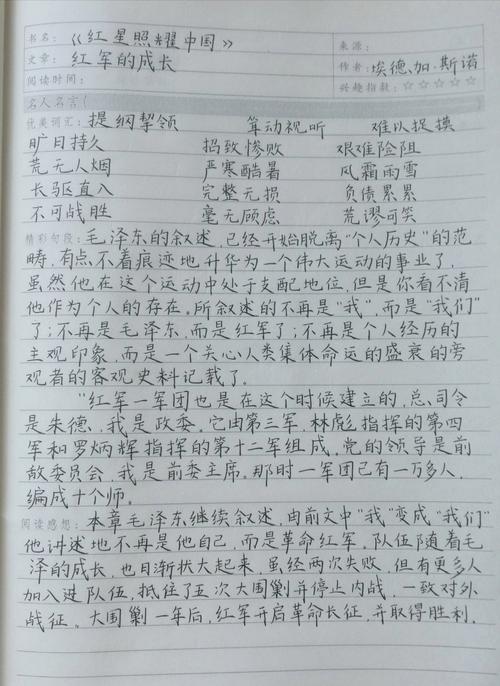 书名：《红星照耀中国》 来源：
文章：红军的成长 作者：埃德.加.斯诺
阅读时间： 兴趣指数：☆☆☆☆☆
名人名言（
优美词汇：提纲挈领 耸动视听 难以捉摸
旷日持久 招致惨败 艰难险阻
荒无人烟 严寒酷暑 风霜雨雪
长驱直入 完整无损 负债累累
不可战胜 毫无顾虑 荒谬可笑
精彩句段：毛泽东的叙述，已经开始脱离“个人历史”的范
畴，有点不着痕迹地升华为一个伟大运动的事业了，
虽然他在这个运动中处于支配地位，但是你看不清
他作为个人的存在。所叙述的不再是“我”，而是“我们”
了；不再是毛泽东，而是红军了；不再是个人经历的
主观印象，而是一个关心人类集体命运的盛衰的旁
观者的客观史料记载了。
“红军一军团也是在这个时候建立的，总司令
是朱德、我是政委。它由第三军，林彪指挥的第四
军和罗炳辉指挥的第十二军组成，党的领导是前
敌委员会，我是前委主席。那时一军团已有一万多人，
编成十个师。
阅读感想：本章毛泽东继续叙述，由前文中“我”变成“我们”
他讲述地不再是他自己，而是革命红军，队伍随着毛
泽的成长，也日渐状大起来，虽经两次失败，但有更多人
加入进队伍，抵住了五次大围剿并停止内战，一致对外
战征。大围剿一年后，红军开启革命长征，并取得胜利，